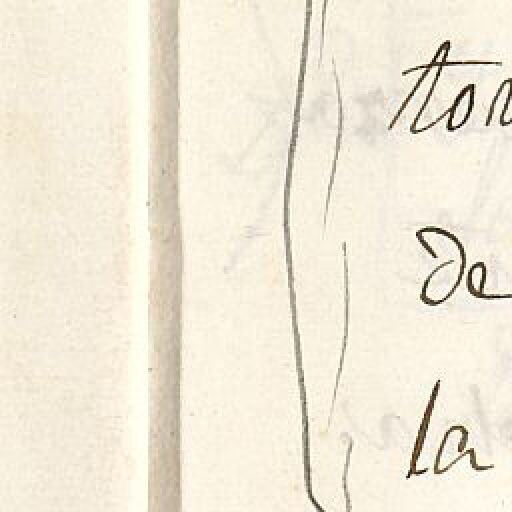 ton
de
la